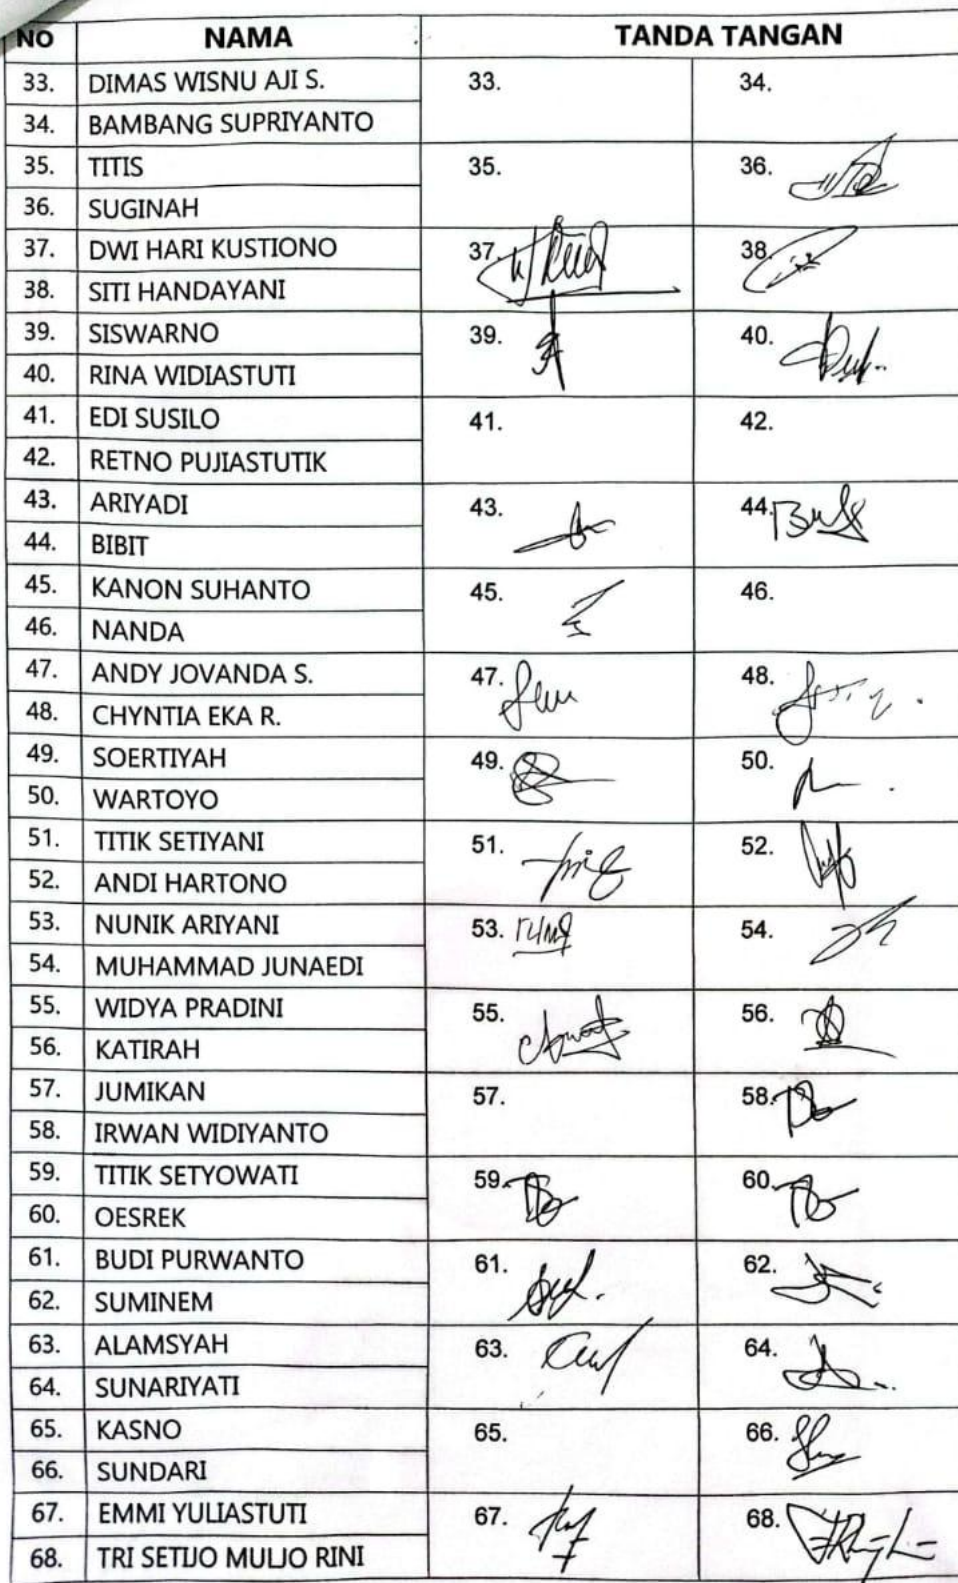 NO NAMA TANDA TANGAN
33. DIMAS WISNU AJI S. 33. 34.
34. BAMBANG SUPRIYANTO
35. TITIS 35. 36.
36. SUGINAH
37. DWI HARI KUSTIONO 37. 38.
38. SITI HANDAYANI
39. SISWARNO 39. 40.
40. RINA WIDIASTUTI
41. EDI SUSILO 41. 42.
42. RETNO PUJIASTUTIK
43. ARIYADI 43. 44.
44. BIBIT
45. KANON SUHANTO 45. 46.
46. NANDA
47. ANDY JOVANDA S. 47. 48.
48. CHYNTIA EKA R.
49. SOERTIYAH 49. 50.
50. WARTOYO
51. TITIK SETIYANI 51. 52.
52. ANDI HARTONO
53. NUNIK ARIYANI 53. 54.
54. MUHAMMAD JUNAEDI
55. WIDYA PRADINI 55. 56.
56. KATIRAH
57. JUMIKAN 57. 58.
58. IRWAN WIDIYANTO
59. TITIK SETYOWATI 59. 60.
60. OESREK
61. BUDI PURWANTO 61. 62.
62. SUMINEM
63. ALAMSYAH 63. 64.
64. SUNARIYATI
65. KASNO 65. 66.
66. SUNDARI
67. EMMI YULIASTUTI 67. 68.
68. TRI SETIJO MULJO RINI